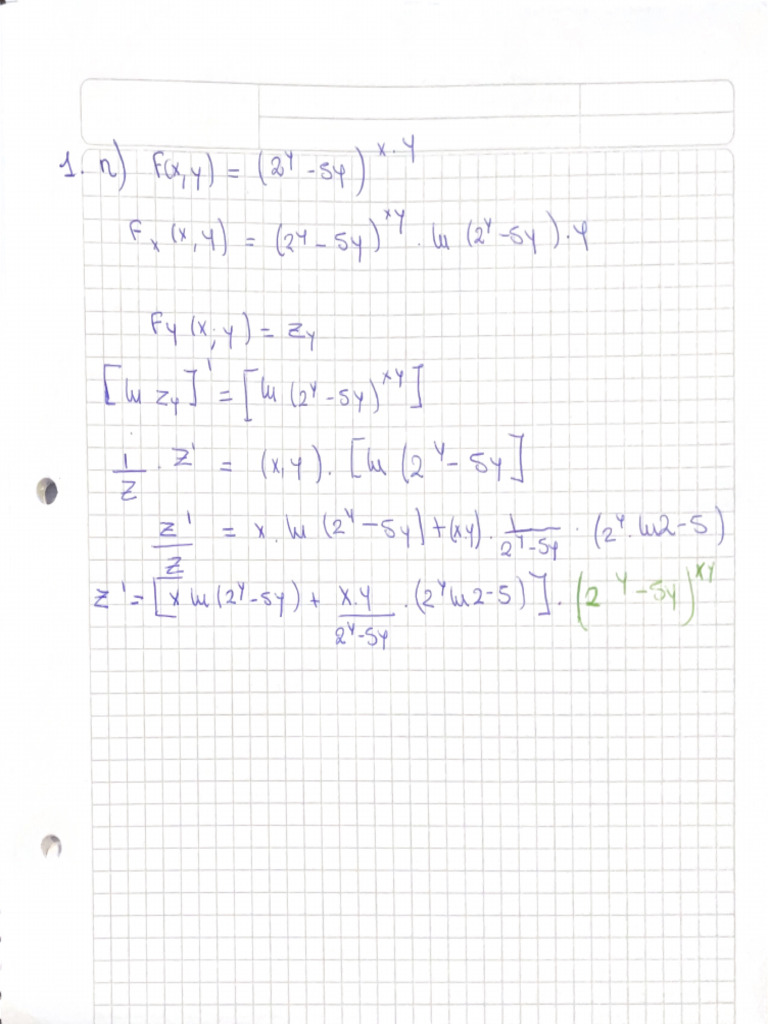 1. n) F(x,y) = (2^y - 5y)^x.y
F_x (x,y) = (2^y - 5y)^xy . ln (2^y - 5y) . y
Fy (x,y) = z_y
[ln z_y]' = [ln (2^y - 5y)^xy]
1/z . z' = (x,y) . [ln (2^y - 5y]
z'/z = x . ln (2^y - 5y) + (xy) . 1/(2^y - 5y) . (2^y . ln2 - 5)
z' = [x ln (2^y - 5y) + x.y/(2^y - 5y) . (2^y ln2 - 5)] . (2^y - 5y)^xy